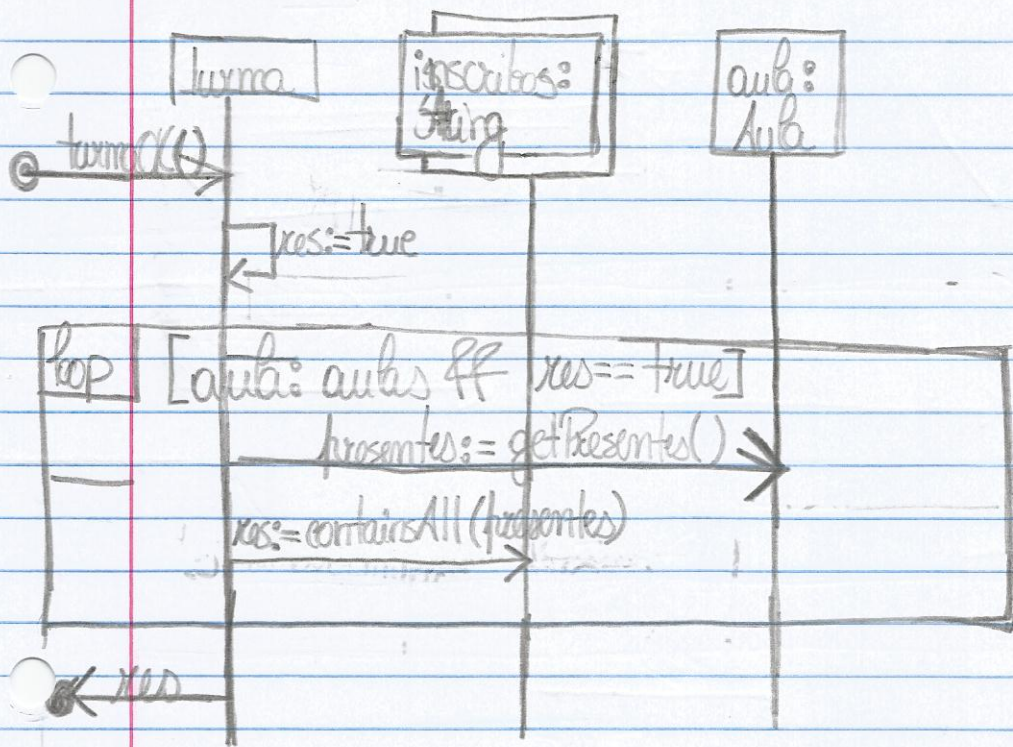 turma
inscritos:
String
aula:
Aula
turmaOK()
res:=true
loop
[aula: aulas && res==true]
presentes:=getPresentes()
res:=containsAll(presentes)
res